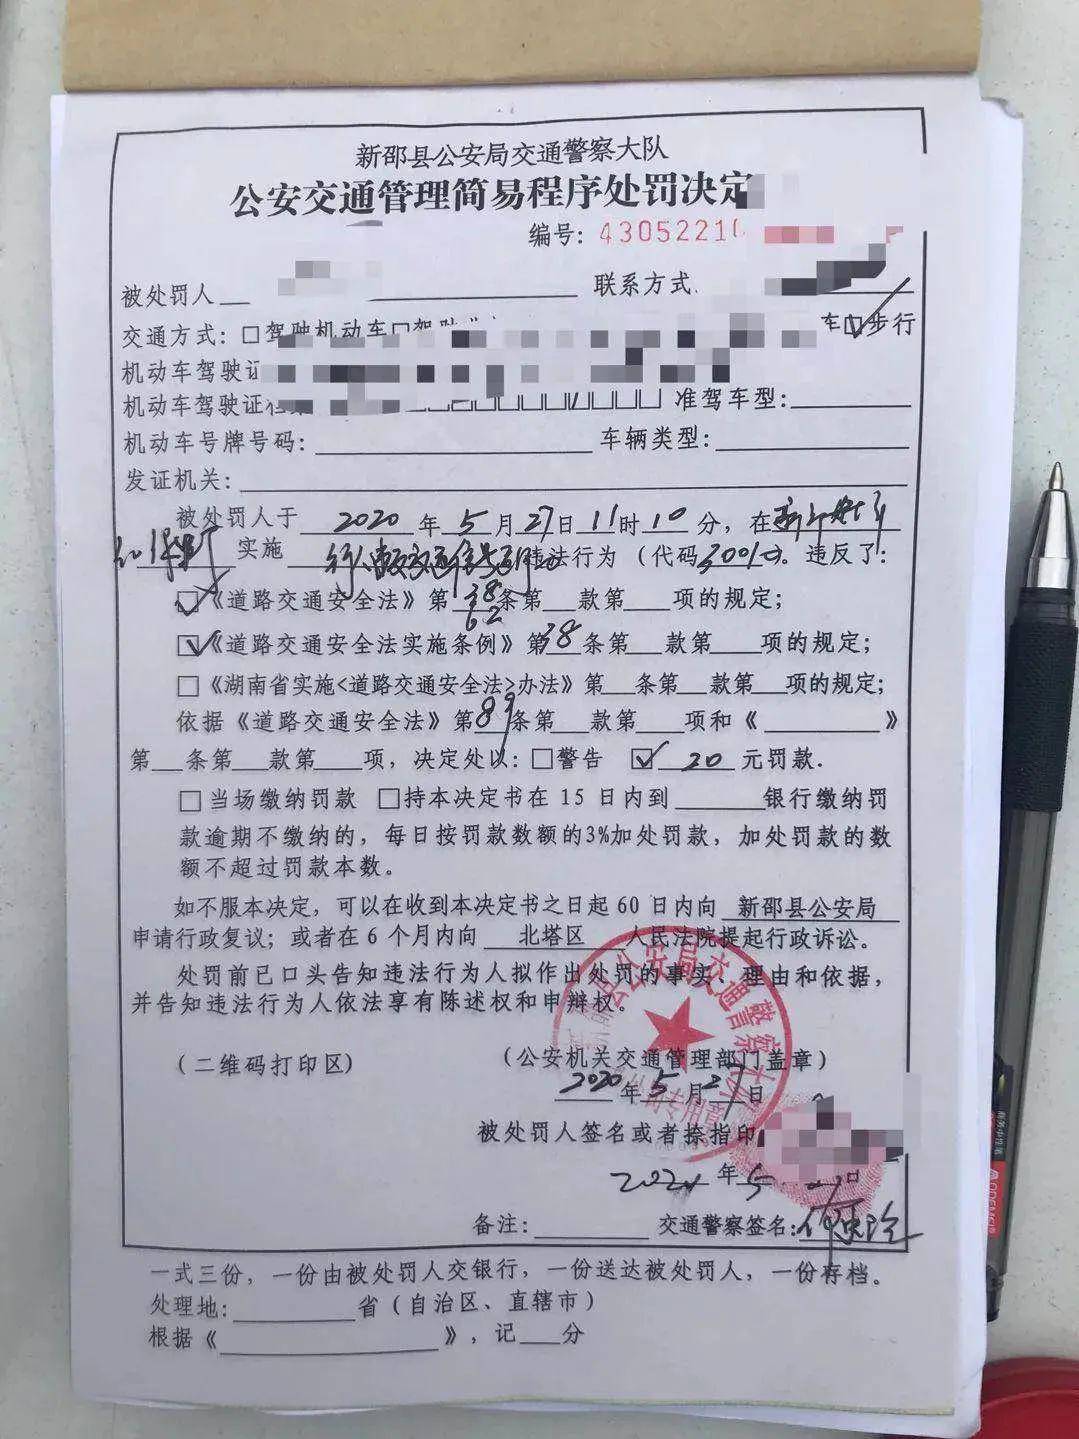 新邵县公安局交通警察大队
公安交通管理简易程序处罚决定
编号: 43052210
被处罚人 联系方式
交通方式: □驾驶机动车□驾驶 车☑步行
机动车驾驶证
机动车驾驶证 准驾车型:
机动车号牌号码: 车辆类型:
发证机关:
被处罚人于 2020 年 5 月 27 日 11 时 10 分, 在
实施 违法行为 (代码 3001 )。违反了:
☑《道路交通安全法》第 38 62 条第 款第 项的规定;
☑《道路交通安全法实施条例》第 38 条第 款第 项的规定;
□《湖南省实施<道路交通安全法>办法》第 条第 款第 项的规定;
依据《道路交通安全法》第 89 条第 款第 项和《 》
第 条第 款第 项, 决定处以: □警告 ☑ 20 元罚款.
□当场缴纳罚款 □持本决定书在 15 日内到 银行缴纳罚
款逾期不缴纳的, 每日按罚款数额的3%加处罚款, 加处罚款的数
额不超过罚款本数。
如不服本决定, 可以在收到本决定书之日起 60 日内向 新邵县公安局
申请行政复议; 或者在 6 个月内向 北塔区 人民法院提起行政诉讼。
处罚前已口头告知违法行为人拟作出处罚的事实、理由和依据,
并告知违法行为人依法享有陈述权和申辩权。
(二维码打印区) (公安机关交通管理部门盖章)
2020 年 5 月 27 日
被处罚人签名或者捺指印
年 5 日
备注: 交通警察签名:
一式三份, 一份由被处罚人交银行, 一份送达被处罚人, 一份存档。
处理地: 省 (自治区、直辖市)
根据《 》, 记 分
县公安局交通警察大